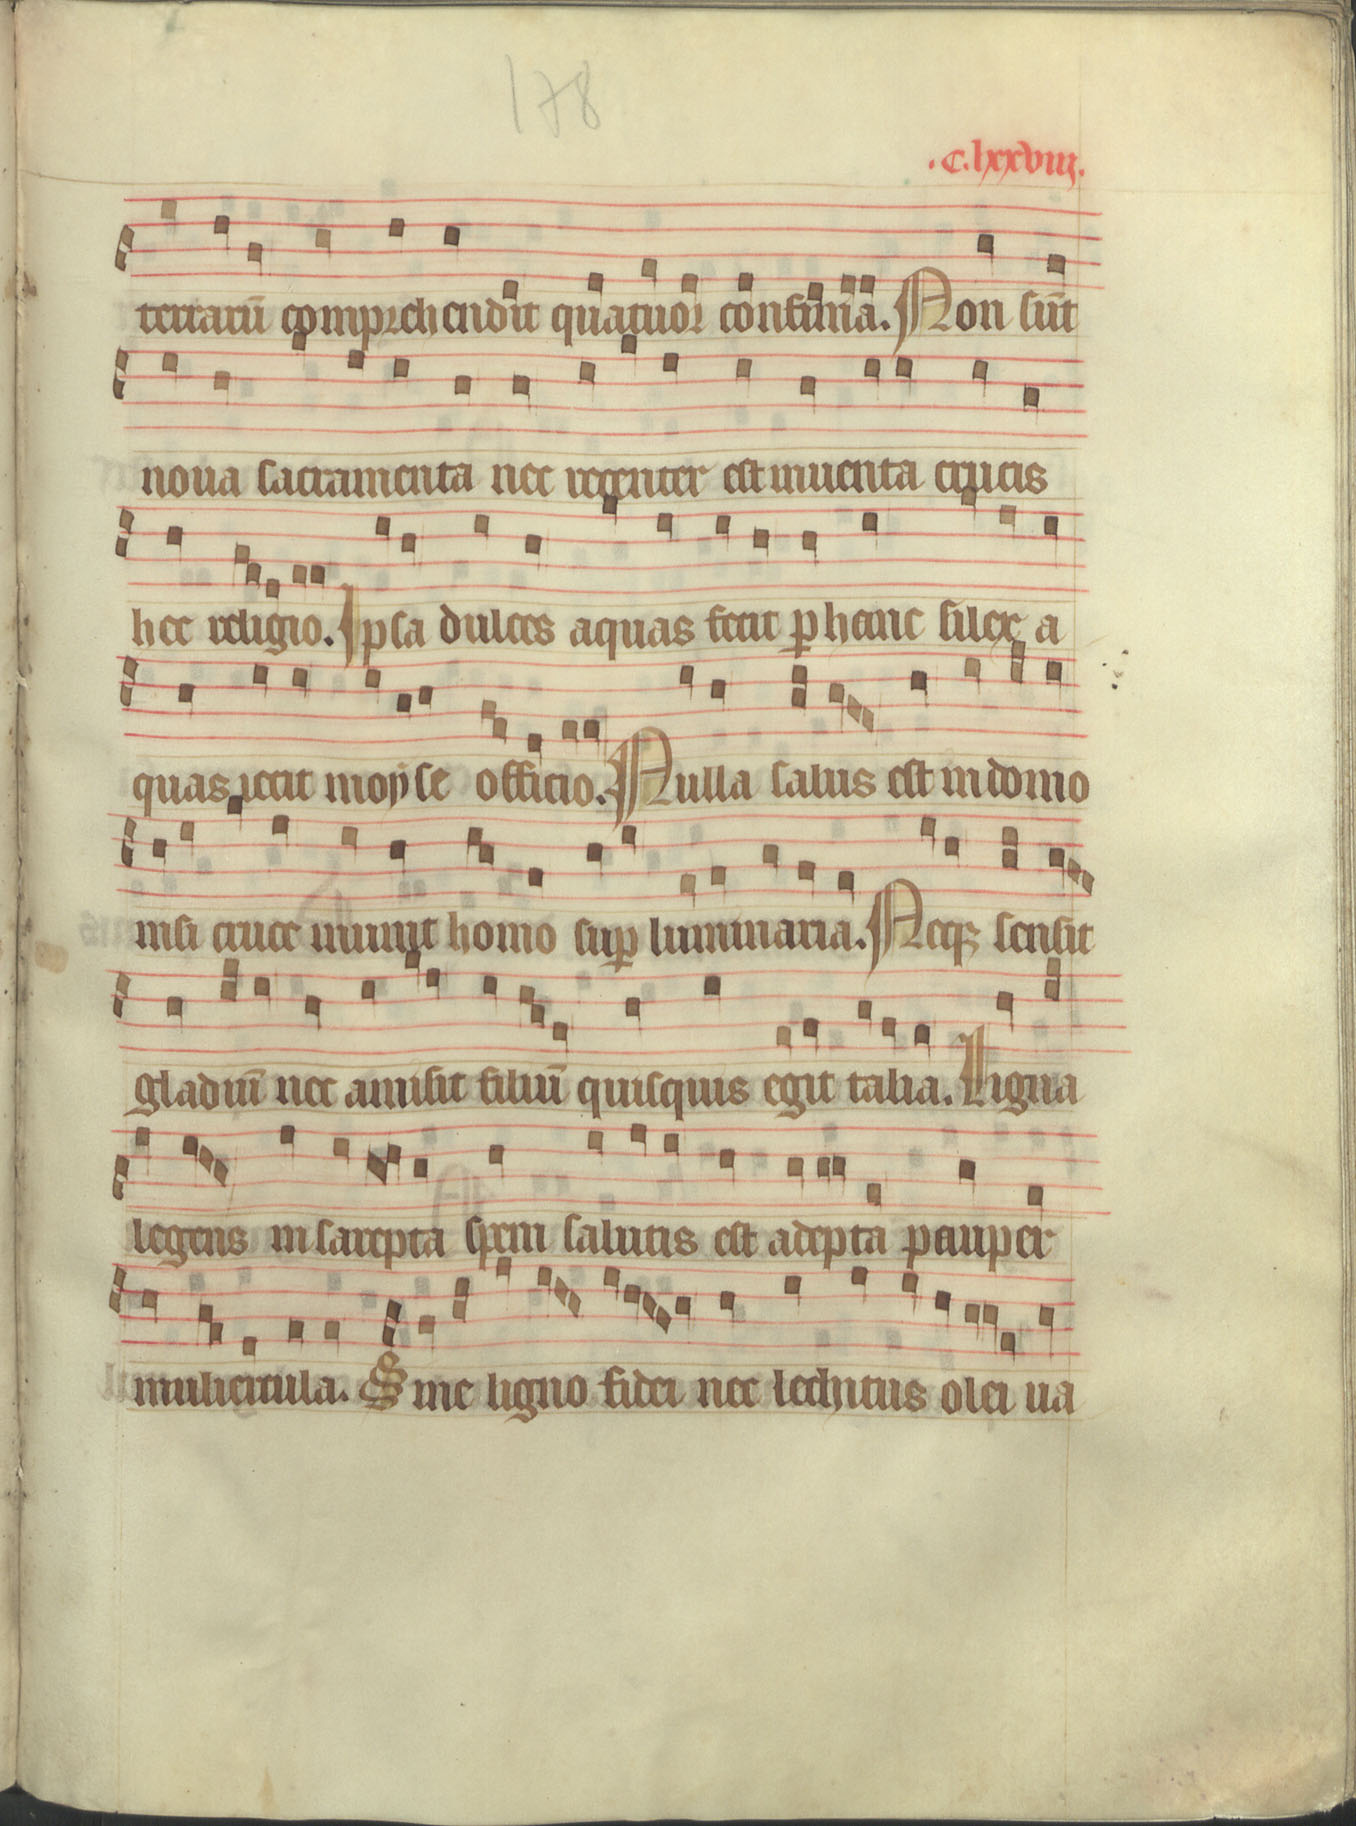 178
.c.lxxviii.
terrarū comprehendit quatuor confinia. Non sūt
noua sacramenta nec recenter est inuenta crucis
hec religio. Ipsa dulces aquas fecit p hanc silex a
quas iecit moẏse officio. Nulla salus est in domo
nisi cruce munit homo sup luminaria. Neqȝ sensit
gladiū nec amisit filiū quisquis egit talia. Ligna
legens in sarepta spem salutis est adepta pauper
muliercula. Sine ligno fidei nec lechitus olei ua